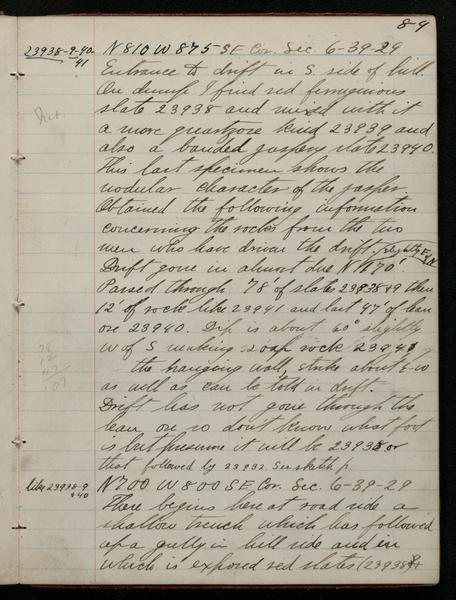 8-4
23938-9-40-41
N810 W875 SE Cor. Sec 6-39-29
Entrance to drift in S. side of hill.
On dump I find red ferruginous
slate 23938 and mixed with it
a more quartzose kind 23939 and
also a banded jaspery slate 23940.
This last specimen shows the
nodular character of the jasper.
Obtained the following information
concerning the rocks from the two
men who have driven the drift
Drift gone in almost due N 170'.
Passed through 78 of slate 23938 & 9 then
12' of rock like 23941 and last 47' of lean
ore 23940. Dip is about 60° slightly
W of S making cap rock 23941
the hanging wall, strike about E-W
as well as can be told in drift.
Drift has not gone through the
lean ore so don't know what foot
is but presume it will be 23938 or
that followed by 23932. See sketch p.
like 23938-9 & 40
N700 W800 SE Cor. Sec. 6-39-29
There begins here at road side a
shallow trench which has followed
up a gully in hill side and in
which is exposed red slates (23938